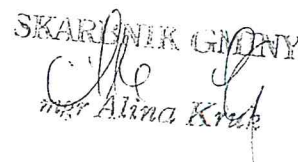 SKARBNIK GMINY
mgr Alina Kruk